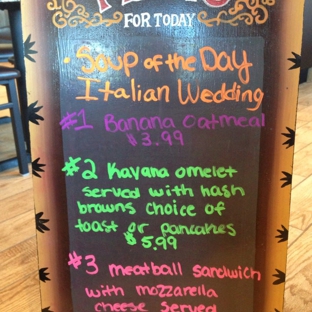 FOR TODAY
• Soup of the Day
Italian Wedding
#1 Banana Oatmeal
$3.99
#2 Kavana omelet
served with hash
browns choice of
toast or pancakes
$5.99
#3 meatball sandwich
with mozzarella
cheese served